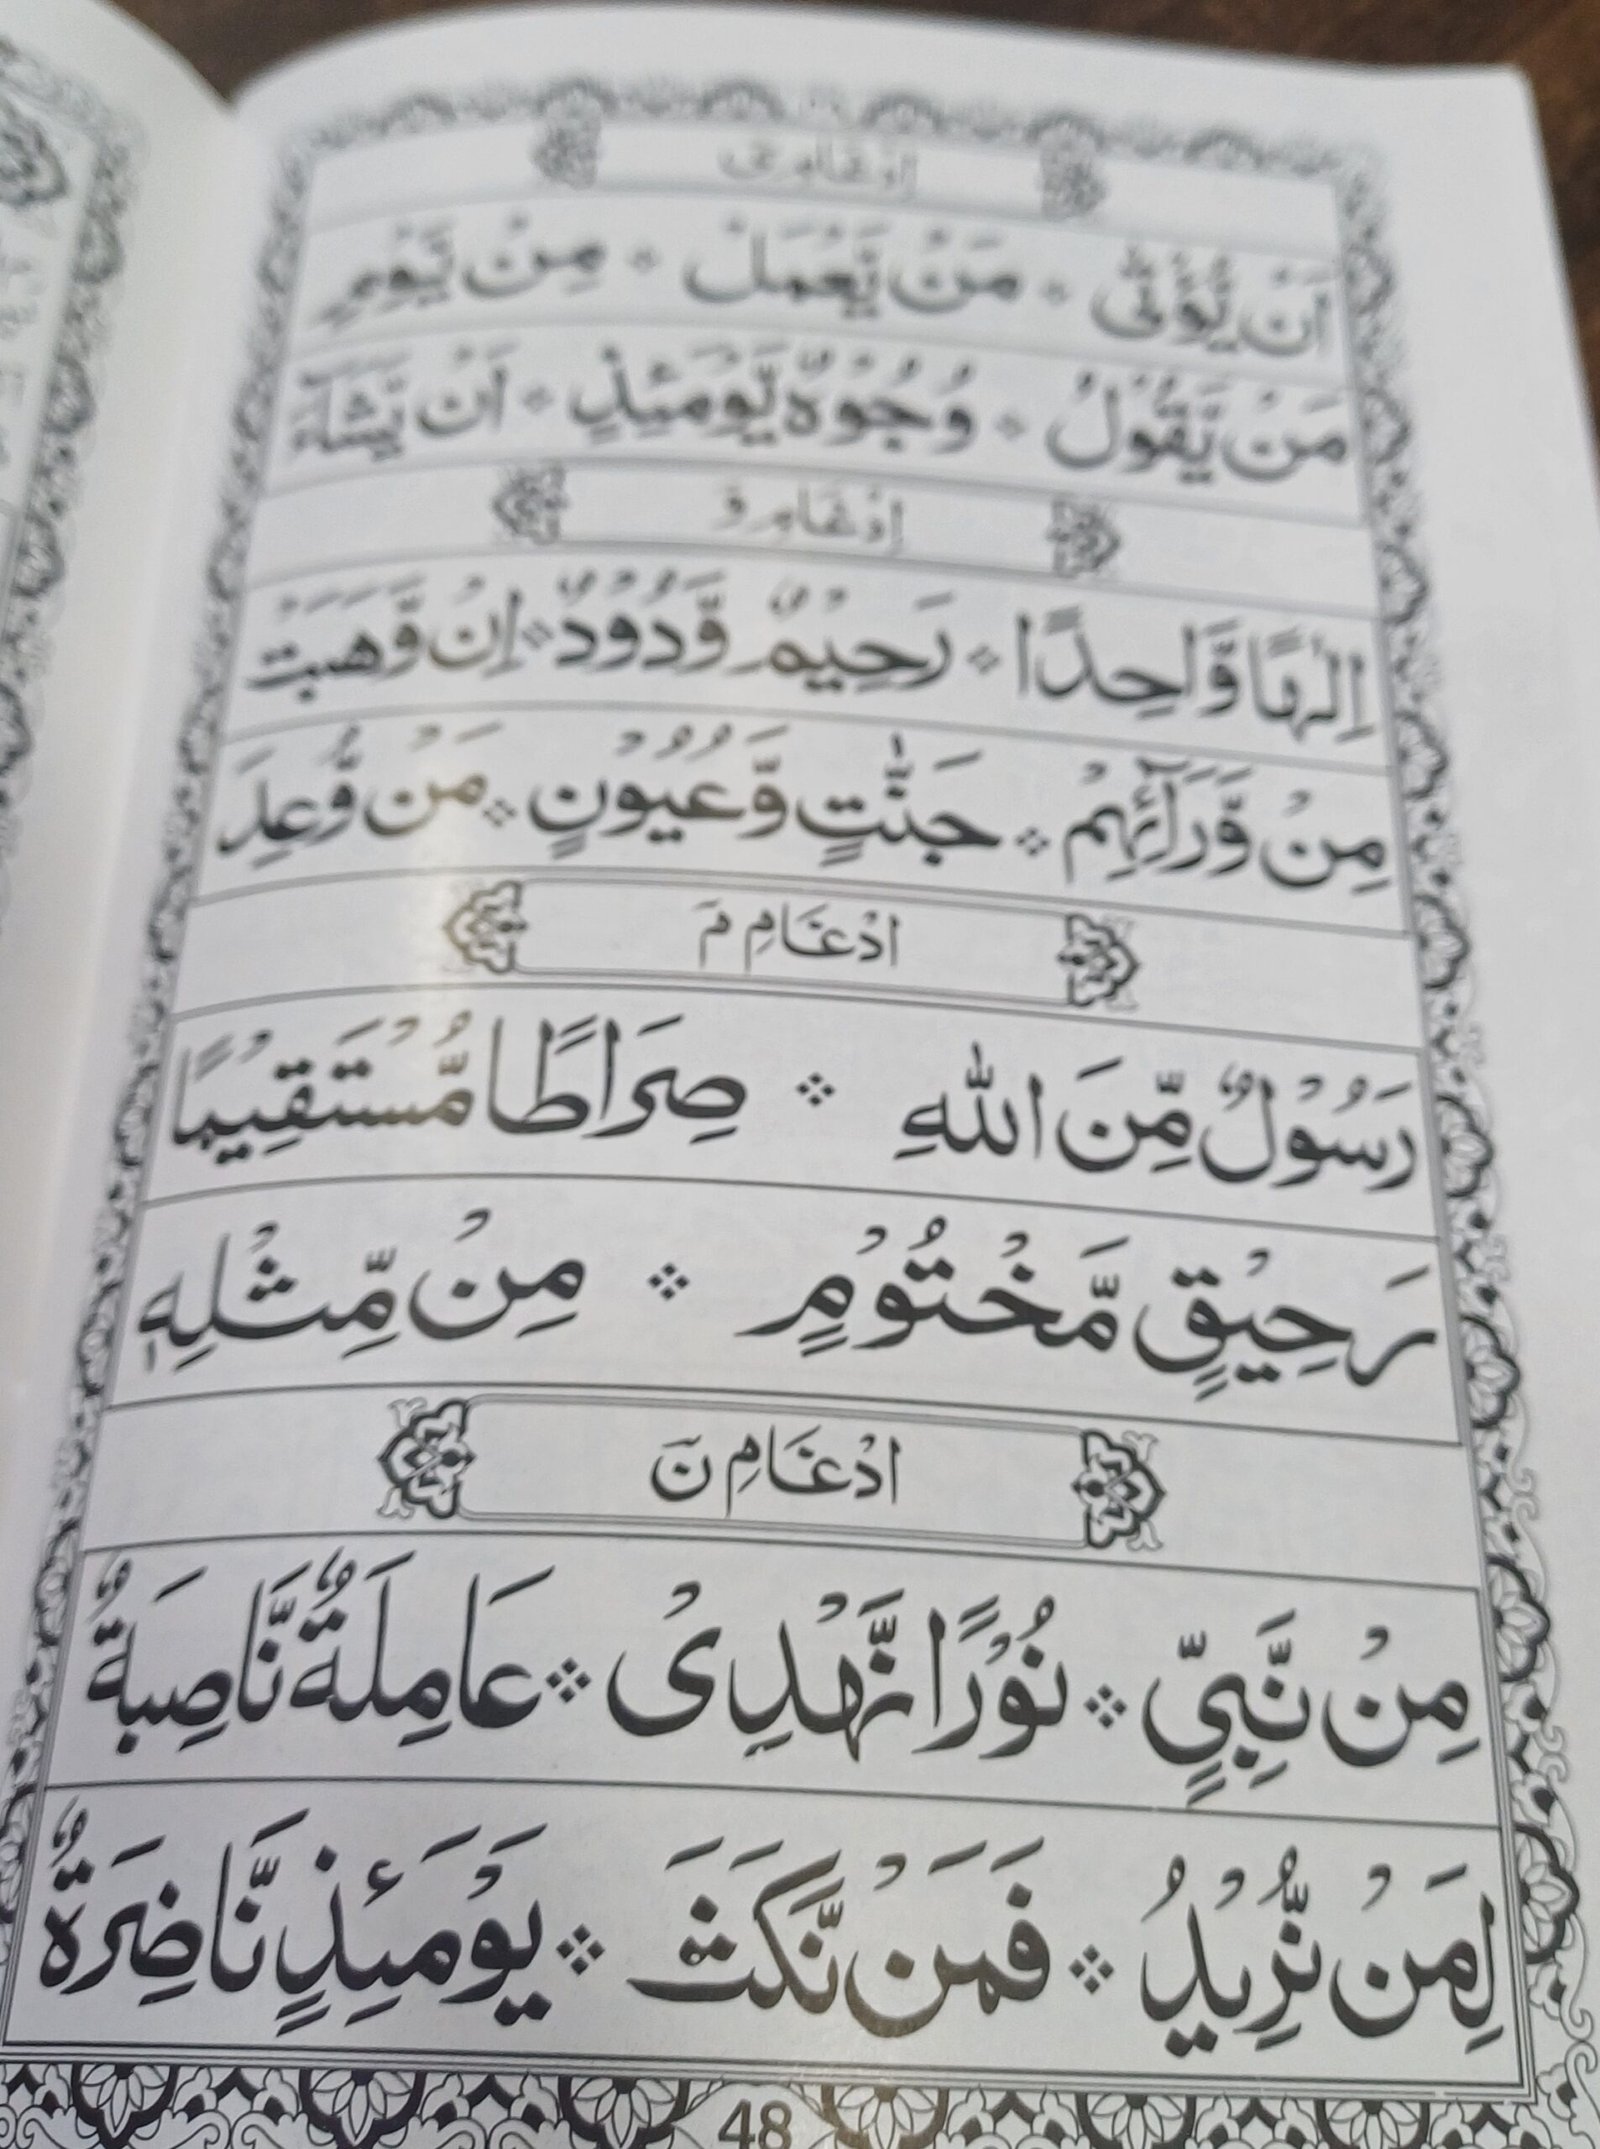 ادغام ی
اَنْ یُّؤْتٰی ❖ مَنْ یَّعْمَلْ ❖ مِنْ یَّوْمِ
مَنْ یَّقُوْلُ ❖ وُجُوْهٌ یَّوْمَئِذٍ ❖ اَنْ یَّشَآءَ
اِدْغَامِ وَ
اِلٰـهًا وَّاحِدًا ❖ رَحِیْمٌ وَّدُوْدٌ ❖ اِنْ وَّهَبَتْ
مِنْ وَّرَآئِهِمْ ❖ جَنّٰتٍ وَّعُیُوْنٍ ❖ مَنْ وُّعِدَ
ادْغَامِ مَ
رَسُوْلٌ مِّنَ اللّٰهِ ❖ صِرَاطًا مُّسْتَقِیْمًا
رَحِیْقٍ مَّخْتُوْمٍ ❖ مِنْ مِّثْلِهٖ
ادْغَامِ نَ
مِنْ نَّبِیٍّ ❖ نُوْرًا نَّهْدِیْ ❖ عَامِلَةٌ نَّاصِبَةٌ
لِمَنْ نُّرِیْدُ ❖ فَمَنْ نَّكَثَ ❖ یَوْمَئِذٍ نَّاضِرَةٌ
48